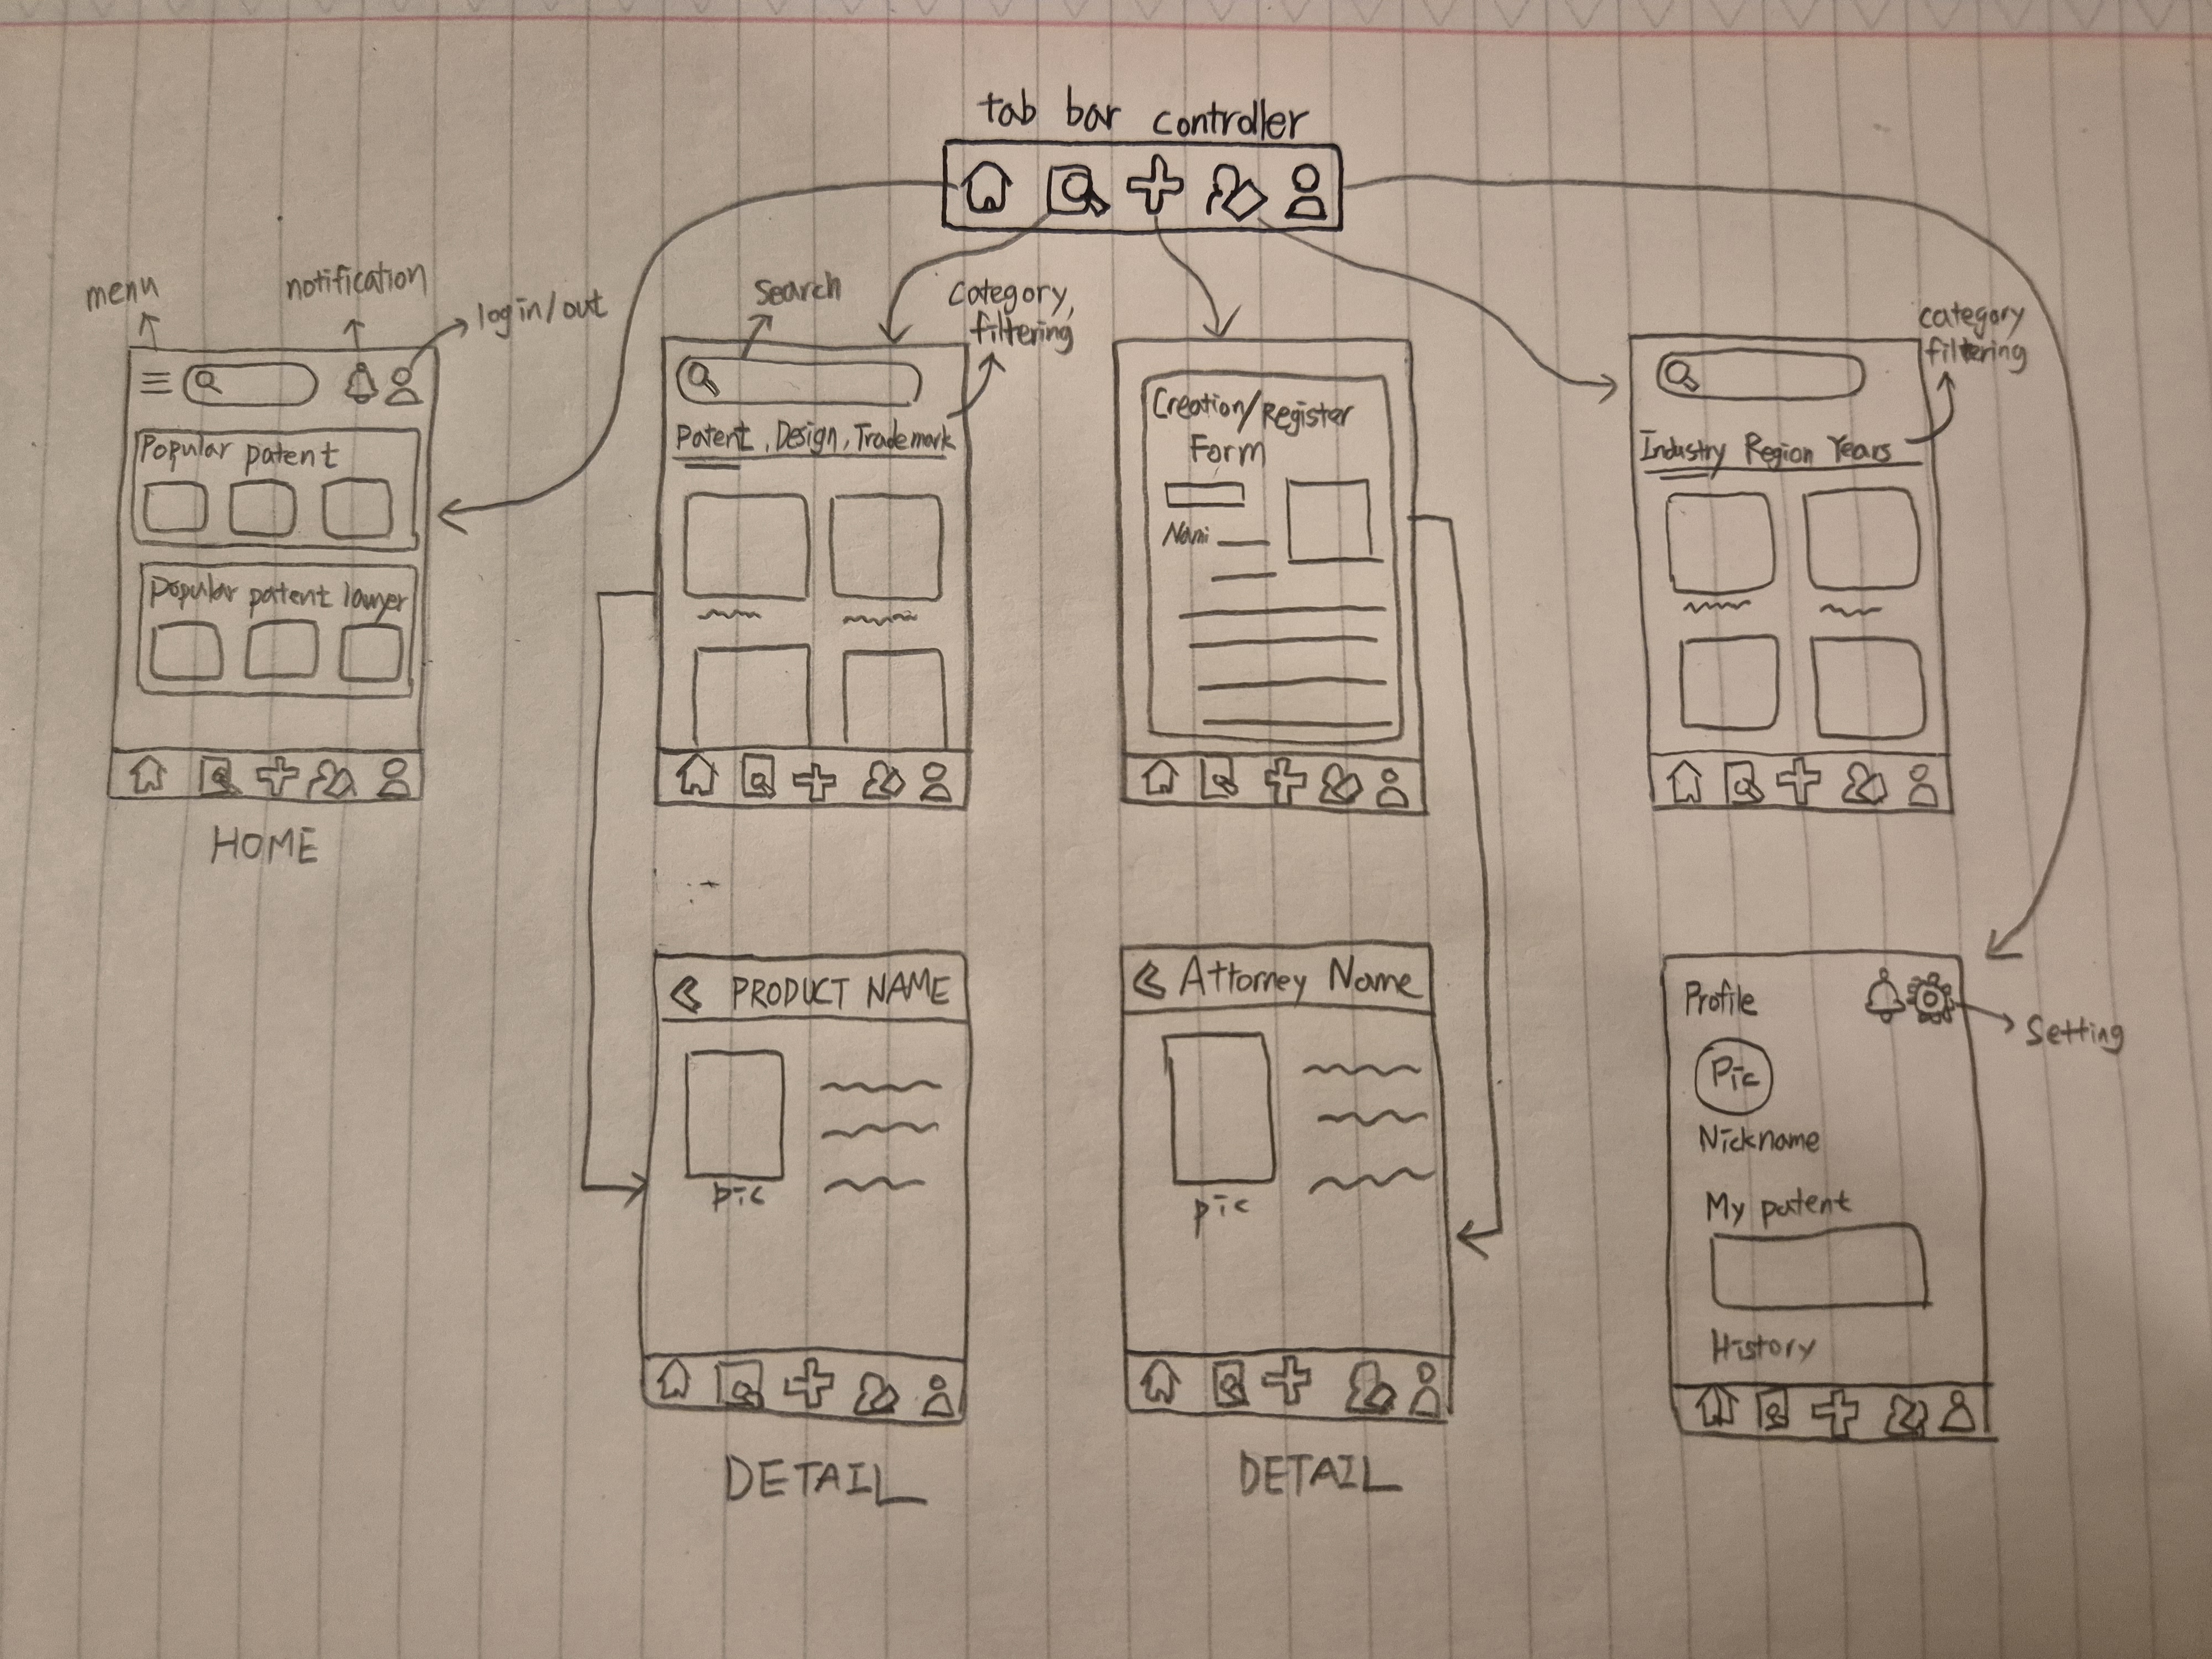 tab bar controller
menu
notification
log in/out
Popular patent
Popular patent lawyer
HOME
Search
Category,
filtering
Patent, Design, Trademark
Creation/Register
Form
category
filtering
Industry Region Years
PRODUCT NAME
pic
DETAIL
Attorney Name
pic
DETAIL
Profile
Setting
Pic
Nickname
My patent
History